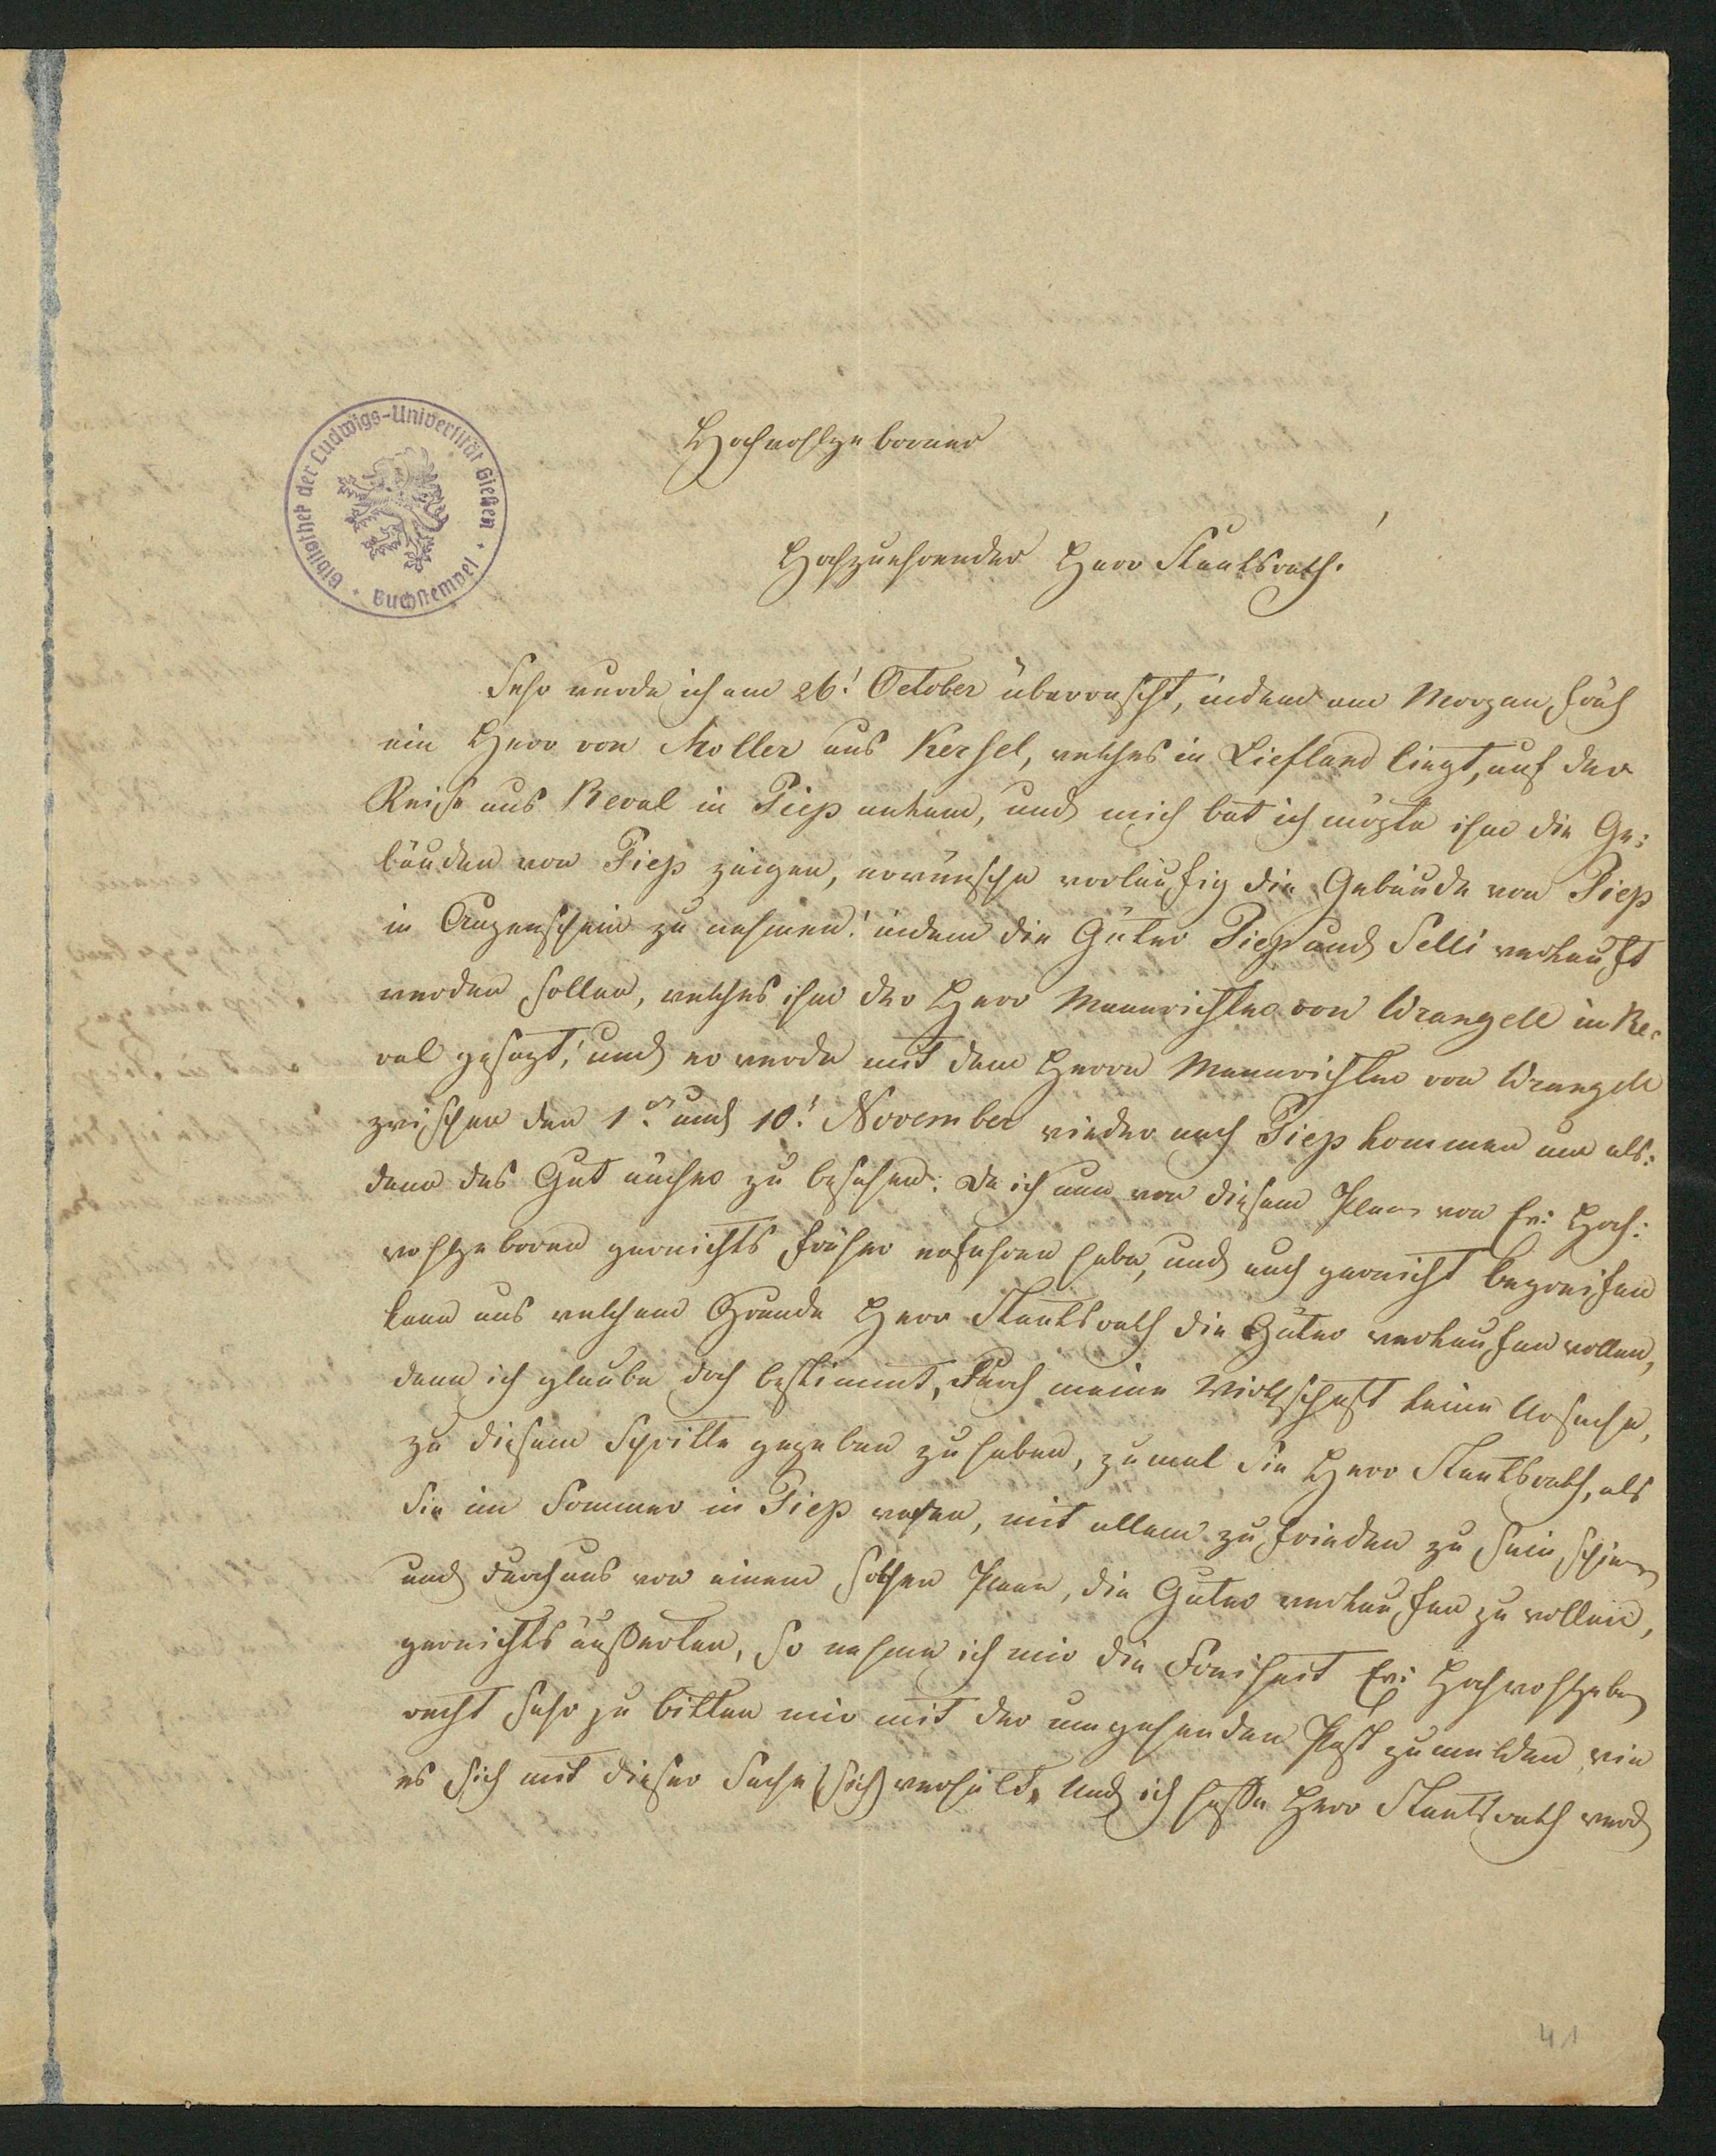 Bibliothek der Ludwigs-Universität Gießen · Buchstempel ·
Hochwohlgeborner
Hochzuehrender Herr Staatsrath!
Sehr wurde ich am 26! October überrascht, indem am Morgen früh
ein Herr von Moller aus Kersel, welches in Liefland liegt, auf der
Reise aus Reval in Piep ankam, und mich bat ich mögte ihm die Ge:
bäuden von Piep zeigen, er wünsche vorläufig die Gebäude von Piep
in Augenschein zu nehmen! indem die Güter Piep und Selli verkauft
werden sollen, welches ihm der Herr Mannrichter von Wrangell in Re:
val gesagt! und er werde mit dem Herrn Mannrichter von Wrangell
zwischen den 1. und 10! November wieder nach Piep kommen um als:
dann das Gut näher zu besehen: Da ich nun von diesem Plan von Ew: Hoch:
wohlgeboren garnichts früher erfahren habe, und auch garnicht begreifen
kann aus welchem Grunde Herr Staatsrath die Güter verkaufen wollen,
denn ich glaube doch bestimmt, durch meine Wirthschaft keine Ursache,
zu diesem Schritte gegeben zu haben, zumal Sie Herr Staatsrath, als
Sie im Sommer in Piep waren, mit allem zufrieden zu sein schienen
und durchaus von einem solchen Plane, die Güter verkaufen zu wollen,
garnichts äußerten, so nehme ich mir die Freiheit Ew: Hochwohlgeb
recht sehr zu bitten mir mit der umgehenden Post zu melden, wie
es sich mit dieser Sache (sich) verhält, Und ich hoffe Herr Staatsrath werd
41